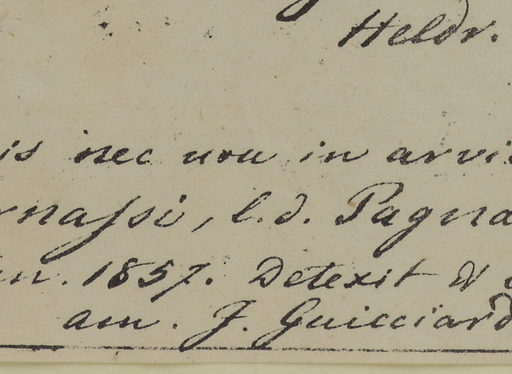 Heldr.
is nec non in arvis
rnassi, l.d. Pagna
un. 1857. Detexit &
am. J. Guicciard